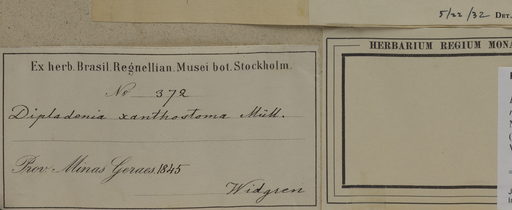 5/22/32 DET.
HERBARIUM REGIUM MONA
Ex herb. Brasil. Regnellian. Musei bot. Stockholm.
No 372
Dipladenia xanthostoma Müll.
Prov. Minas Geraes. 1845
Widgren